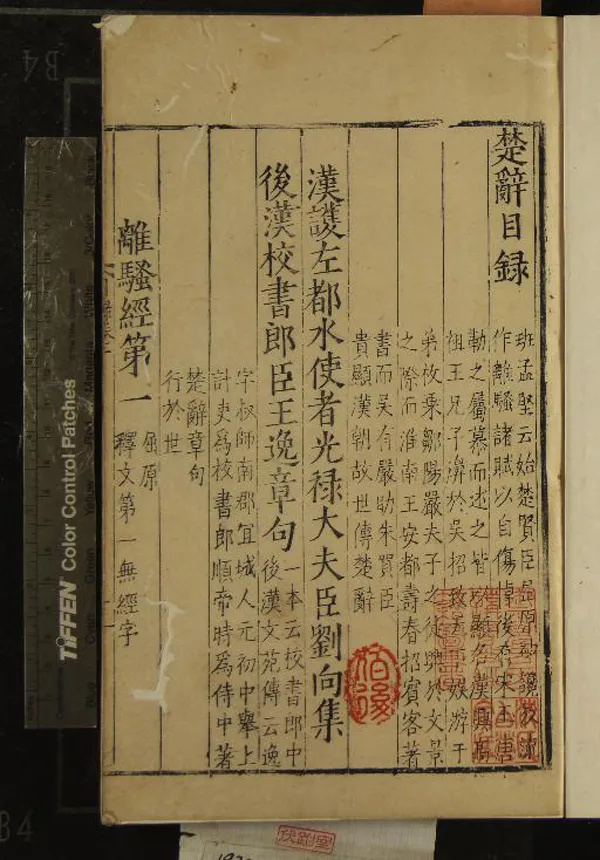 楚辭目録
班孟堅云始楚賢臣屈原被讒放流
作離騷諸賦以自傷悼後有宋玉唐
勒之屬慕而述之皆以顯名漢興高
祖王兄子濞於吳招致天下娛游子
弟枚乘鄒陽嚴夫子之徒興於文景
之際而淮南王安都壽春招賓客著
書而吳有嚴助朱買臣
貴顯漢朝故世傳楚辭
漢護左都水使者光禄大夫臣劉向集
後漢校書郎臣王逸章句
一本云校書郎中
後漢文苑傳云逸
字叔師南郡宜城人元初中舉上
計吏爲校書郎順帝時爲侍中著
楚辭章句
行於世
離騷經第一
屈原
釋文第一無經字
TIFFEN Color Control Patches
B4
B4